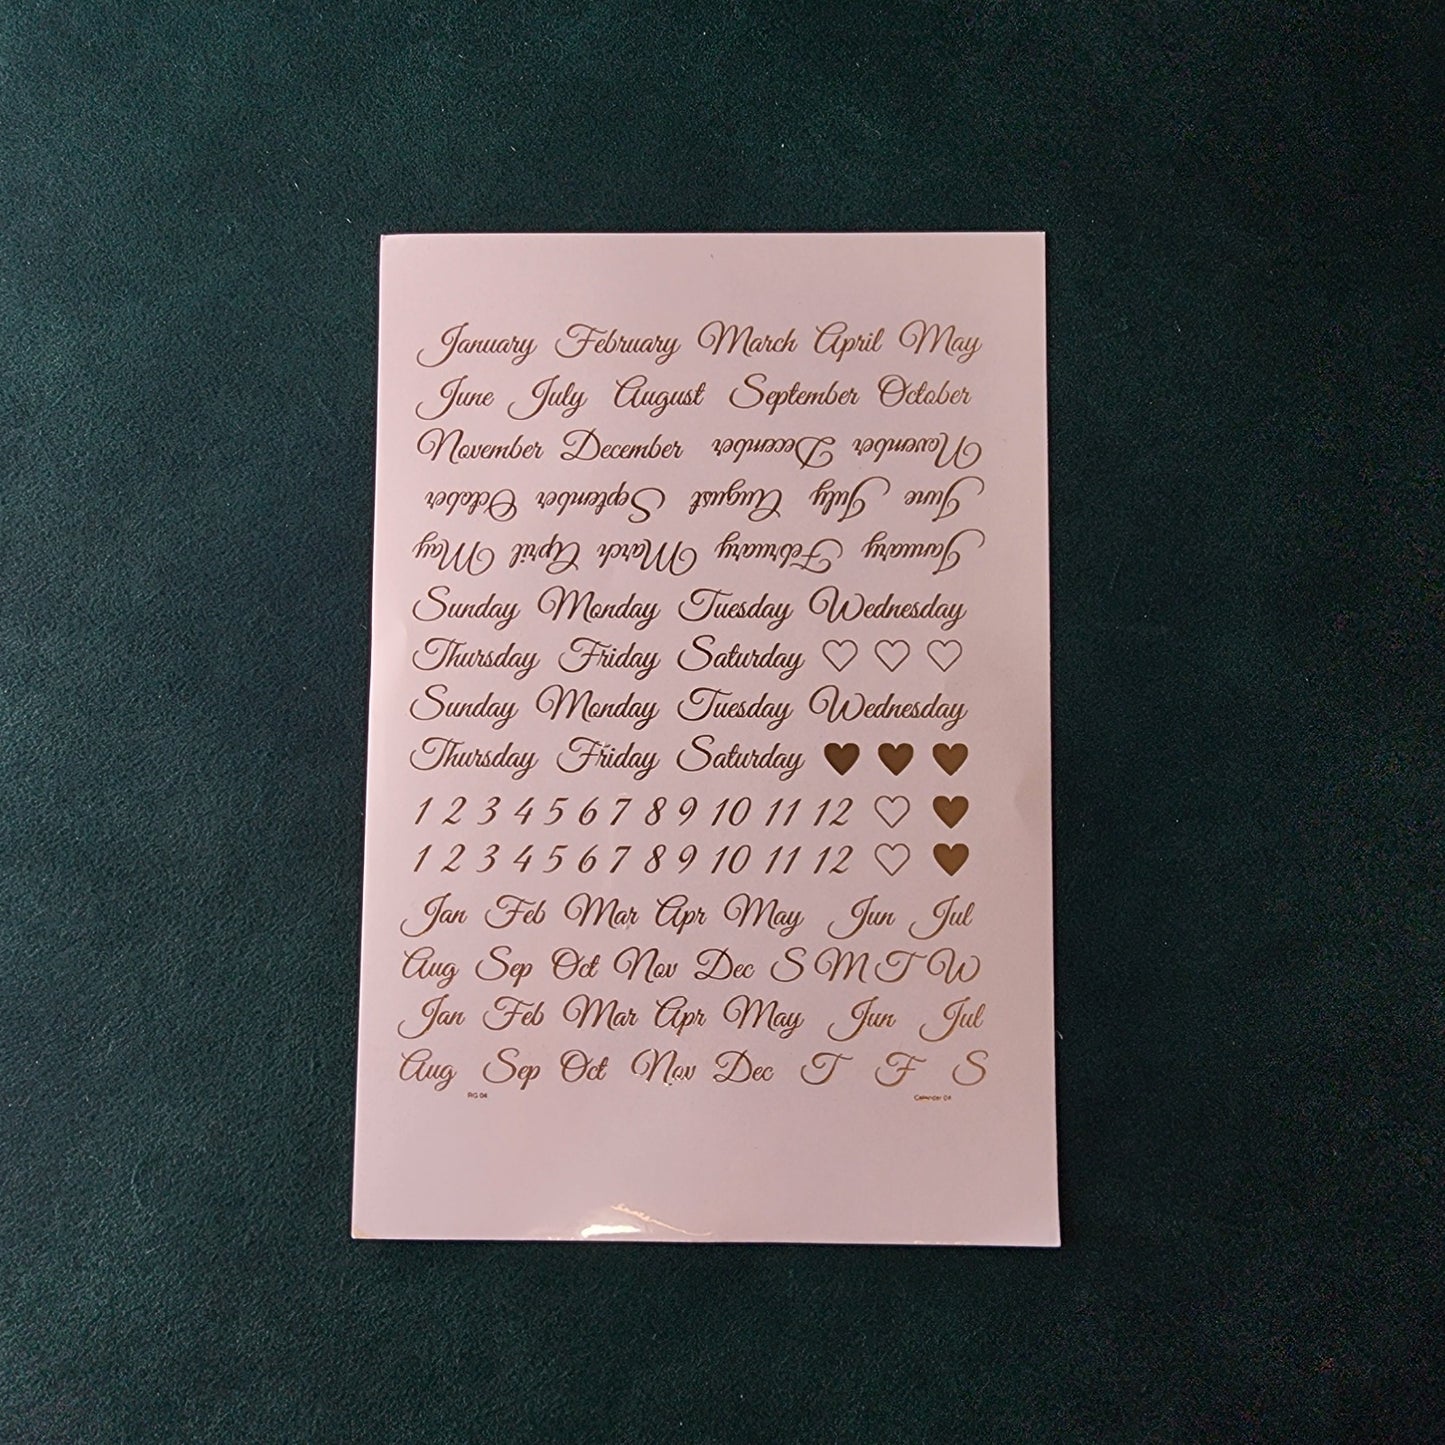 January February March April May
June July August September October
November December December November
October September August July June
May April March February January
Sunday Monday Tuesday Wednesday
Thursday Friday Saturday
Sunday Monday Tuesday Wednesday
Thursday Friday Saturday
1 2 3 4 5 6 7 8 9 10 11 12
1 2 3 4 5 6 7 8 9 10 11 12
Jan Feb Mar Apr May Jun Jul
Aug Sep Oct Nov Dec S M T W
Jan Feb Mar Apr May Jun Jul
Aug Sep Oct Nov Dec T F S
RG 04 Calendar 04